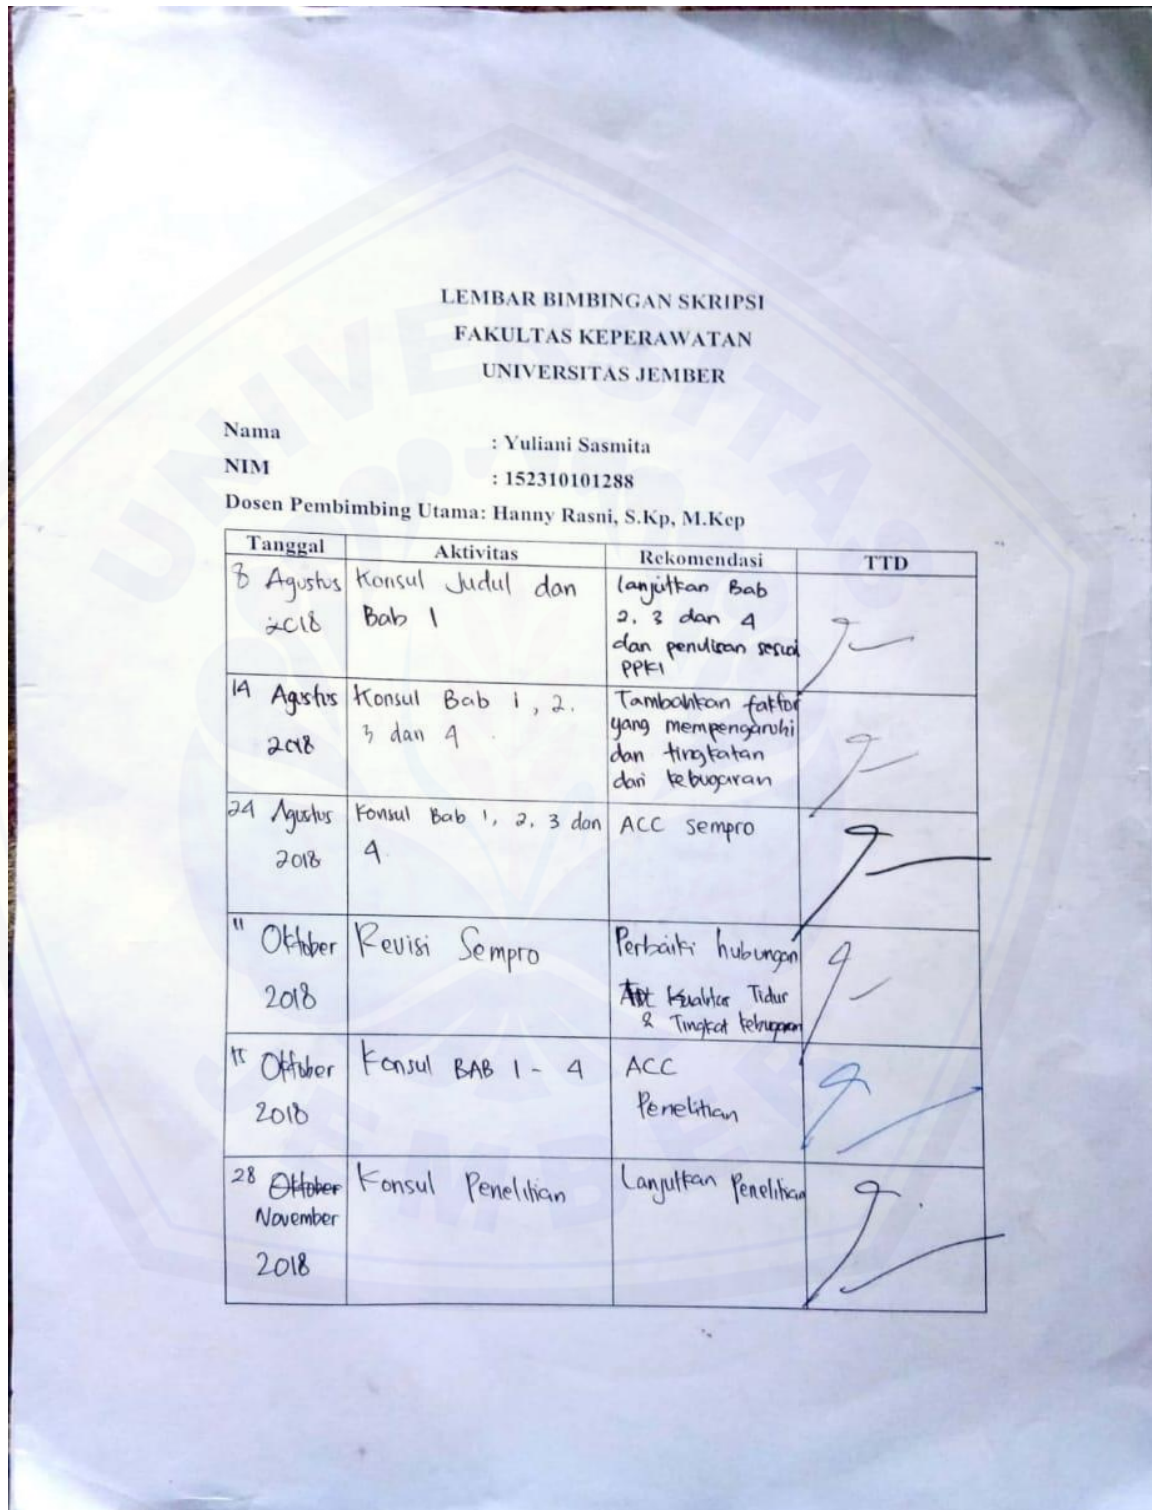 LEMBAR BIMBINGAN SKRIPSI
FAKULTAS KEPERAWATAN
UNIVERSITAS JEMBER
Nama : Yuliani Sasmita
NIM : 152310101288
Dosen Pembimbing Utama: Hanny Rasni, S.Kp, M.Kep
Tanggal Aktivitas Rekomendasi TTD
8 Agustus 2018
Konsul Judul dan
Bab 1
lanjutkan Bab
2, 3 dan 4
dan penulisan sesuai
PPKI
14 Agustus
2018
Konsul Bab 1, 2.
3 dan 4.
Tambahkan faktor
yang mempengaruhi
dan tingkatan
dari kebugaran
24 Agustus
2018
Konsul Bab 1, 2, 3 dan
4.
ACC sempro
11 Oktober
2018
Revisi Sempro
Perbaiki hubungan
Kualitas Tidur
& Tingkat kebugaran
Oktober
2018
Konsul BAB 1 - 4
ACC
Penelitian
28 Oktober
November
2018
Konsul Penelitian
Lanjutkan Penelitian
UNIVERSITAS
JEMBER